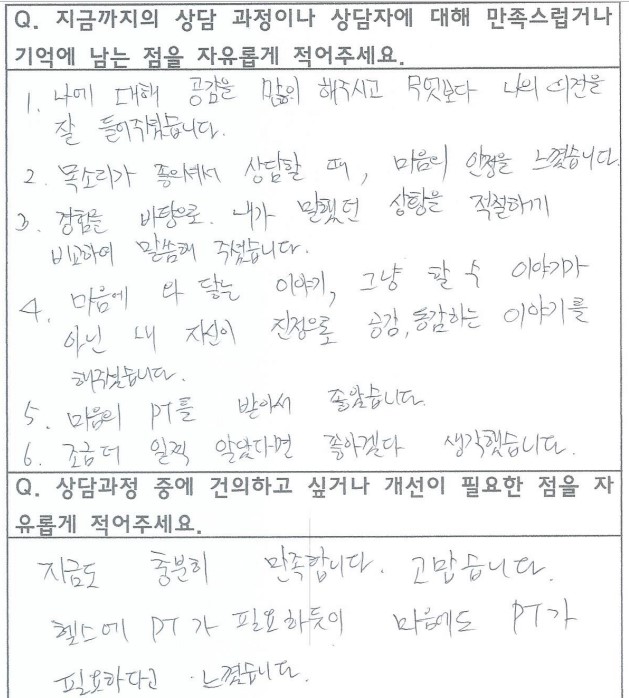 Q. 지금까지의 상담 과정이나 상담자에 대해 만족스럽거나
기억에 남는 점을 자유롭게 적어주세요.
1. 나에 대해 공감을 많이 해주시고 무엇보다 나의 의견을
잘 들어주셨습니다.
2. 목소리가 좋으셔서 상담할 때, 마음의 안정을 느꼈습니다.
3. 경험을 바탕으로 내가 말했던 상황을 적절하게
비교하여 말씀해 주셨습니다.
4. 마음에 와 닿는 이야기, 그냥 할 수 이야기가
아닌 내 자신이 진정으로 공감, 동감하는 이야기를
해주셨습니다.
5. 마음의 PT를 받아서 좋았습니다.
6. 조금 더 일찍 알았다면 좋아겠다 생각했습니다.
Q. 상담과정 중에 건의하고 싶거나 개선이 필요한 점을 자
유롭게 적어주세요.
지금도 충분히 만족합니다. 고맙습니다.
헬스에 PT가 필요하듯이 마음에도 PT가
필요하다고 느꼈습니다.